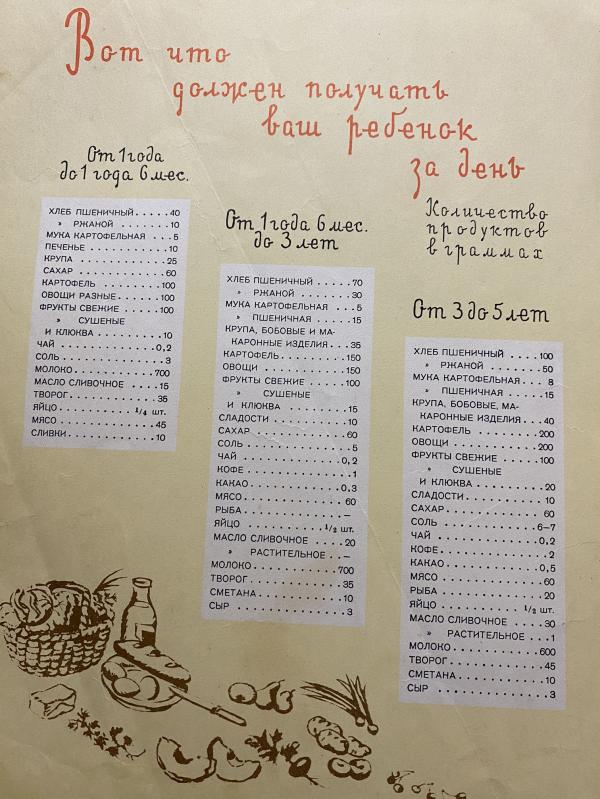 Вот что
должен получать
ваш ребенок
за день
Количество
продуктов
в граммах
От 1 года
до 1 года 6 мес.
ХЛЕБ ПШЕНИЧНЫЙ.....40
» РЖАНОЙ.......10
МУКА КАРТОФЕЛЬНАЯ...5
ПЕЧЕНЬЕ............10
КРУПА..............25
САХАР..............60
КАРТОФЕЛЬ.........100
ОВОЩИ РАЗНЫЕ......100
ФРУКТЫ СВЕЖИЕ.....100
» СУШЕНЫЕ
И КЛЮКВА...........10
ЧАЙ...............0,2
СОЛЬ................3
МОЛОКО............700
МАСЛО СЛИВОЧНОЕ....15
ТВОРОГ.............35
ЯЙЦО...........1/4 шт.
МЯСО...............45
СЛИВКИ.............10
От 1 года 6 мес.
до 3 лет
ХЛЕБ ПШЕНИЧНЫЙ.....70
» РЖАНОЙ.......30
МУКА КАРТОФЕЛЬНАЯ...5
» ПШЕНИЧНАЯ....15
КРУПА, БОБОВЫЕ И МА-
КАРОННЫЕ ИЗДЕЛИЯ...35
КАРТОФЕЛЬ.........150
ОВОЩИ.............150
ФРУКТЫ СВЕЖИЕ.....100
» СУШЕНЫЕ
И КЛЮКВА...........15
СЛАДОСТИ...........10
САХАР..............60
СОЛЬ................5
ЧАЙ...............0,2
КОФЕ................1
КАКАО.............0,3
МЯСО...............60
РЫБА................–
ЯЙЦО...........1/2 шт.
МАСЛО СЛИВОЧНОЕ....20
» РАСТИТЕЛЬНОЕ..–
МОЛОКО............700
ТВОРОГ.............35
СМЕТАНА............10
СЫР.................3
От 3 до 5 лет
ХЛЕБ ПШЕНИЧНЫЙ....100
» РЖАНОЙ.......50
МУКА КАРТОФЕЛЬНАЯ...8
» ПШЕНИЧНАЯ....15
КРУПА, БОБОВЫЕ, МА-
КАРОННЫЕ ИЗДЕЛИЯ...40
КАРТОФЕЛЬ.........200
ОВОЩИ.............200
ФРУКТЫ СВЕЖИЕ.....100
» СУШЕНЫЕ
И КЛЮКВА...........20
СЛАДОСТИ...........10
САХАР..............60
СОЛЬ..............6–7
ЧАЙ...............0,2
КОФЕ................2
КАКАО.............0,5
МЯСО...............60
РЫБА...............20
ЯЙЦО...........1/2 шт.
МАСЛО СЛИВОЧНОЕ....30
» РАСТИТЕЛЬНОЕ...1
МОЛОКО............600
ТВОРОГ.............45
СМЕТАНА............10
СЫР.................3